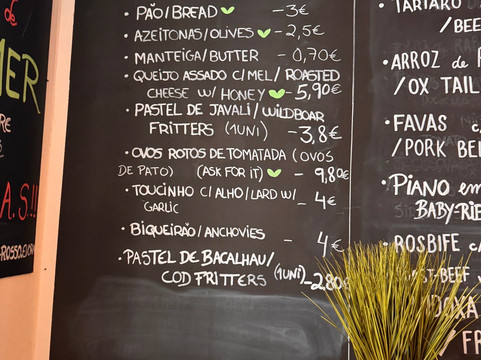 PÃO/BREAD -3€
AZEITONAS/OLIVES -2,5€
MANTEIGA/BUTTER - 0,70€
QUEIJO ASSADO C/MEL/ROASTED
CHEESE W/ HONEY -5,90€
PASTEL DE JAVALI/WILDBOAR
FRITTERS (1UNI) -3,8€
OVOS ROTOS DE TOMATADA (OVOS
DE PATO) (ASK FOR IT) - 9,80€
TOUCINHO C/ALHO/LARD W/
GARLIC - 4€
BIQUEIRÃO/ANCHOVIES - 4€
PASTEL DE BACALHAU/
COD FRITTERS (1UNI) -2,80€
TÁRTARO
/BEE
ARROZ de
/OX TAIL
FAVAS
/PORK BE
PIANO em
BABY-RIB
ROSBIFE c/
ST-BEEF
DOXA
/FR
de
MER
RE
A.S!!